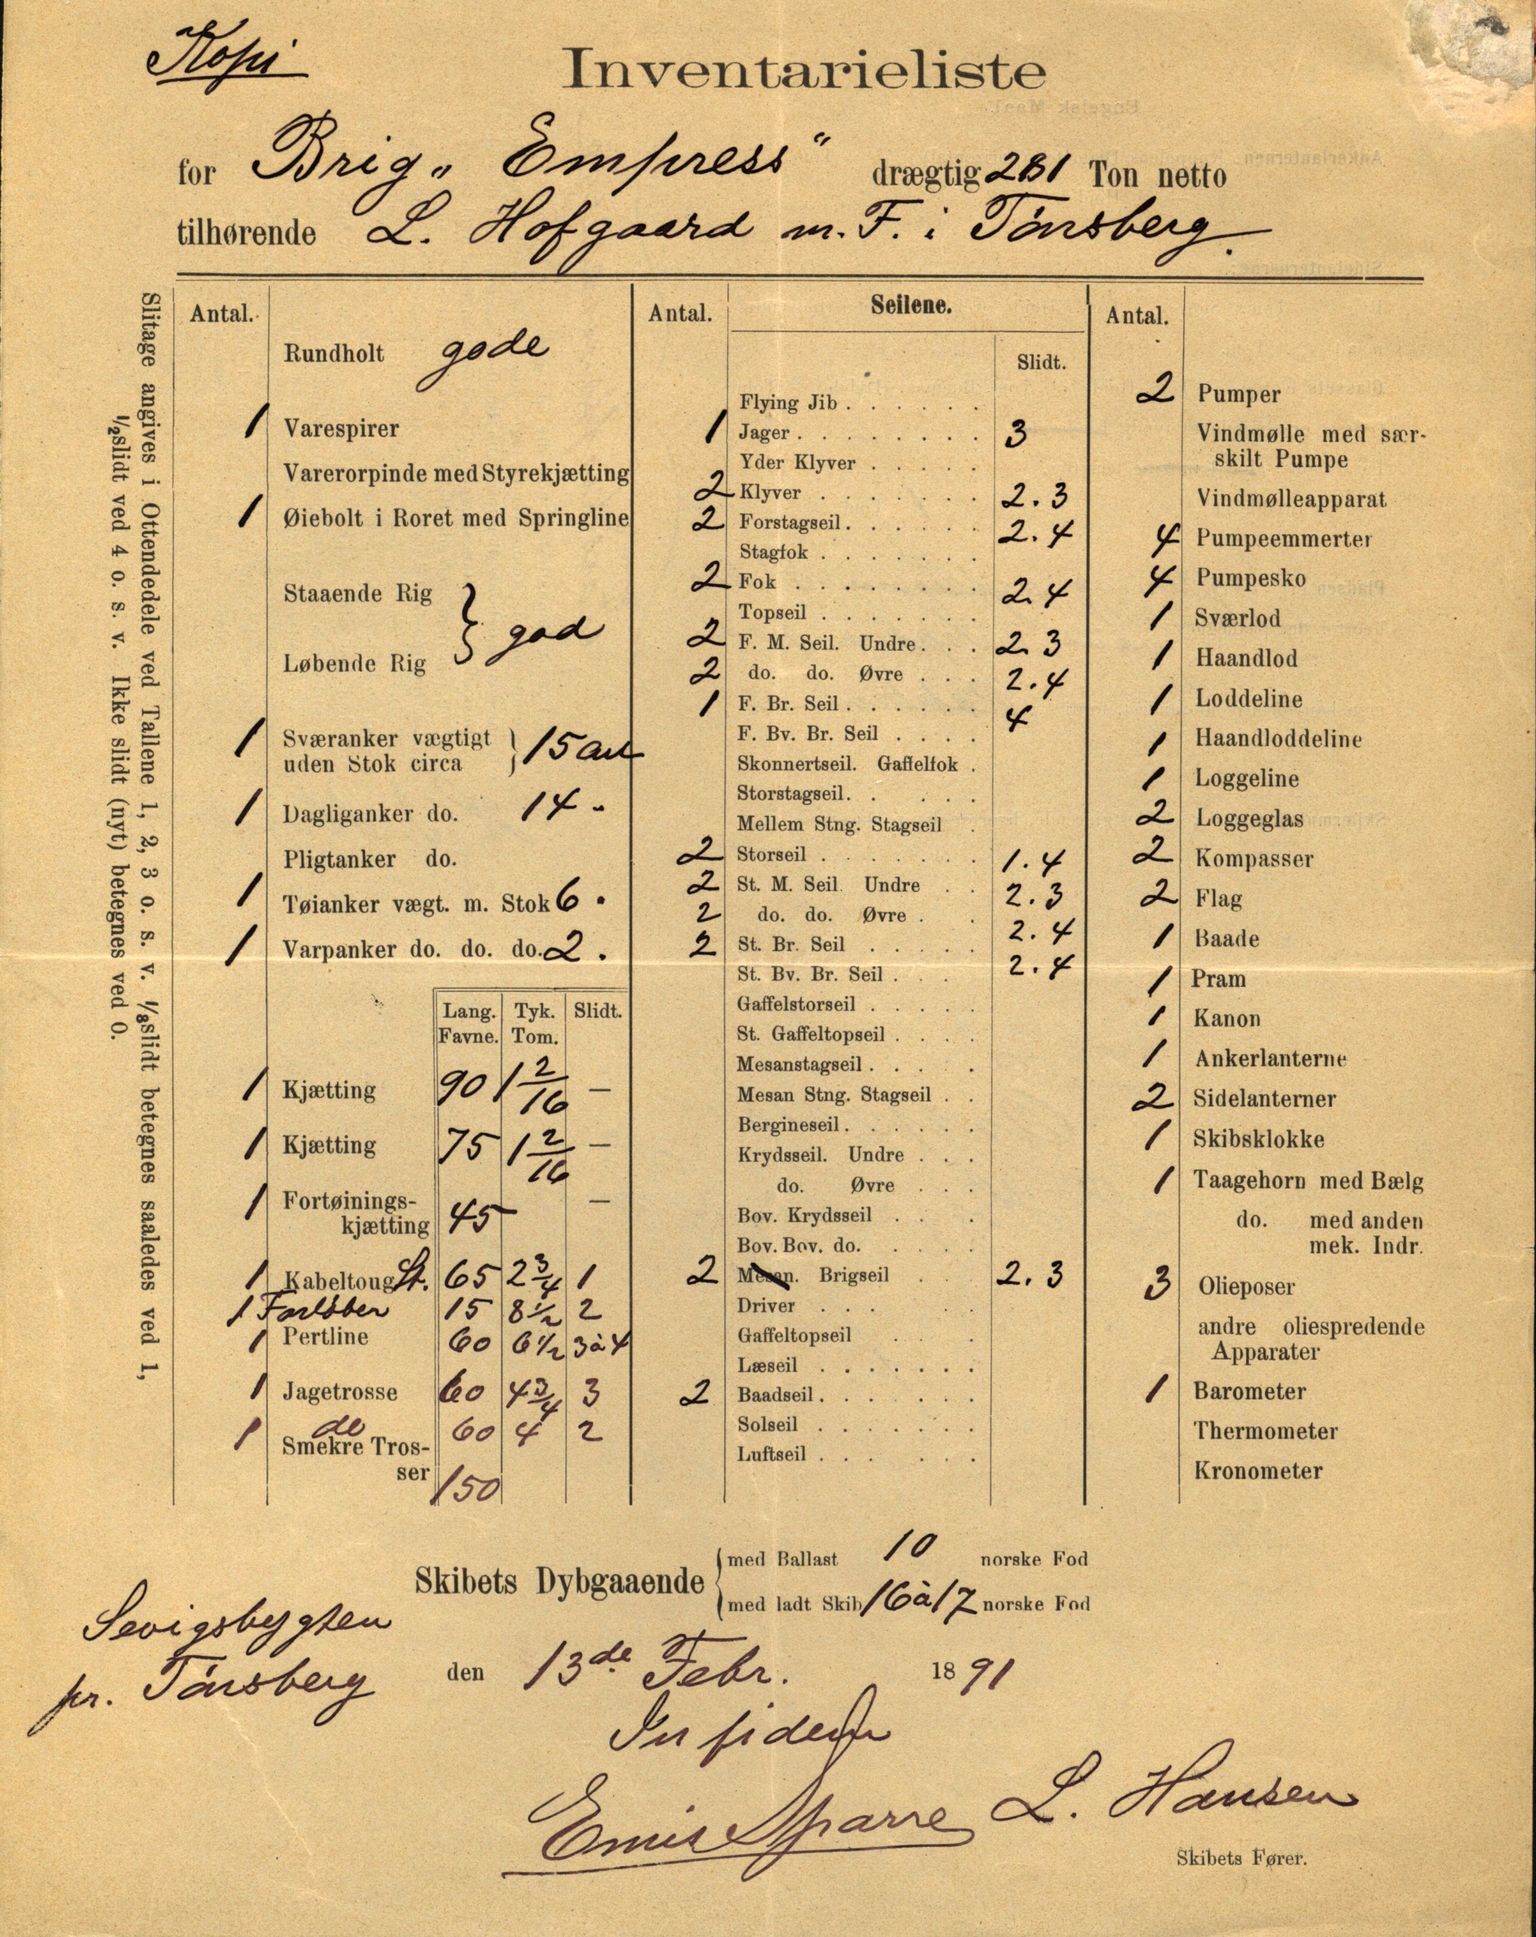 Kopi
Inventarieliste
for Brig „Empress" drægtig 281 Ton netto
tilhørende L. Hofgaard m. F. i Tönsberg
Slitage angives i Ottendedele ved Tallene 1, 2, 3 o. s. v. ⅛ slidt betegnes saaledes ved 1,
½ slidt ved 4 o. s. v. Ikke slidt (nyt) betegnes ved 0.
Antal.
Rundholt gode
1 Varespirer
Varerorpinde med Styrekjætting
1 Øiebolt i Roret med Springline
Staaende Rig
} god
Løbende Rig
1 Sværanker vægtigt
uden Stok circa } 15
1 Dagliganker do. 14 "
Pligtanker do.
1 Tøianker vægt. m. Stok 6 "
1 Varpanker do. do. do. 2 "
Lang. Tyk. Slidt.
Favne. Tom.
1 Kjætting 90 1 2/16 —
1 Kjætting 75 1 2/16 —
1 Fortøinings-
kjætting 45 —
1 Kabeltoug St. 65 2 3/4 1
1 Forlöber 15 8 1/2 2
1 Pertline 60 6 1/2 3 à 4
1 Jagetrosse 60 4 3/4 3
1 do 60 4 2
Smekre Tros-
ser 150
Antal. Seilene.
Slidt.
Flying Jib . . . . . .
1 Jager . . . . . . . . 3
Yder Klyver . . . . .
2 Klyver . . . . . . . 2. 3
2 Forstagseil . . . . . . 2. 4
Stagfok . . . . . . .
2 Fok . . . . . . . . 2. 4
Topseil . . . . . . .
2 F. M. Seil. Undre . . . 2. 3
2 do. do. Øvre . . . 2. 4
1 F. Br. Seil . . . . . . 4
F. Bv. Br. Seil . . . .
Skonnertseil. Gaffelfok .
Storstagseil . . . . .
Mellem Stng. Stagseil .
2 Storseil . . . . . . . 1. 4
2 St. M. Seil. Undre . . 2. 3
2 do. do. Øvre . . 2. 4
2 St. Br. Seil . . . . . 2. 4
St. Bv. Br. Seil . . . .
Gaffelstorseil . . . . .
St. Gaffeltopseil . . . .
Mesanstagseil . . . . .
Mesan Stng. Stagseil . .
Bergineseil . . . . . .
Krydsseil. Undre . . .
do. Øvre . . .
Bov. Krydsseil . . .
Bov. Bov. do. . . . .
2 Mesan. Brigseil . . . 2. 3
Driver . . . . .
Gaffeltopseil . . . .
Læseil . . . . . . .
2 Baadseil . . . . . .
Solseil . . . . . . .
Luftseil . . . . . .
Antal.
2 Pumper
Vindmølle med sær-
skilt Pumpe
Vindmølleapparat
4 Pumpeemmerter
4 Pumpesko
1 Sværlod
1 Haandlod
1 Loddeline
1 Haandloddeline
1 Loggeline
2 Loggeglas
2 Kompasser
2 Flag
1 Baade
1 Pram
1 Kanon
1 Ankerlanterne
2 Sidelanterner
1 Skibsklokke
1 Taagehorn med Bælg
do. med anden
mek. Indr.
3 Olieposer
andre oliespredende
Apparater
1 Barometer
Thermometer
Kronometer
Skibets Dybgaaende { med Ballast 10 norske Fod
med ladt Skib 16 à 17 norske Fod
Sevigsbygten
pr. Tönsberg den 13de Febr. 1891
In fidem
Emil Sparre L. Hansen
Skibets Fører.